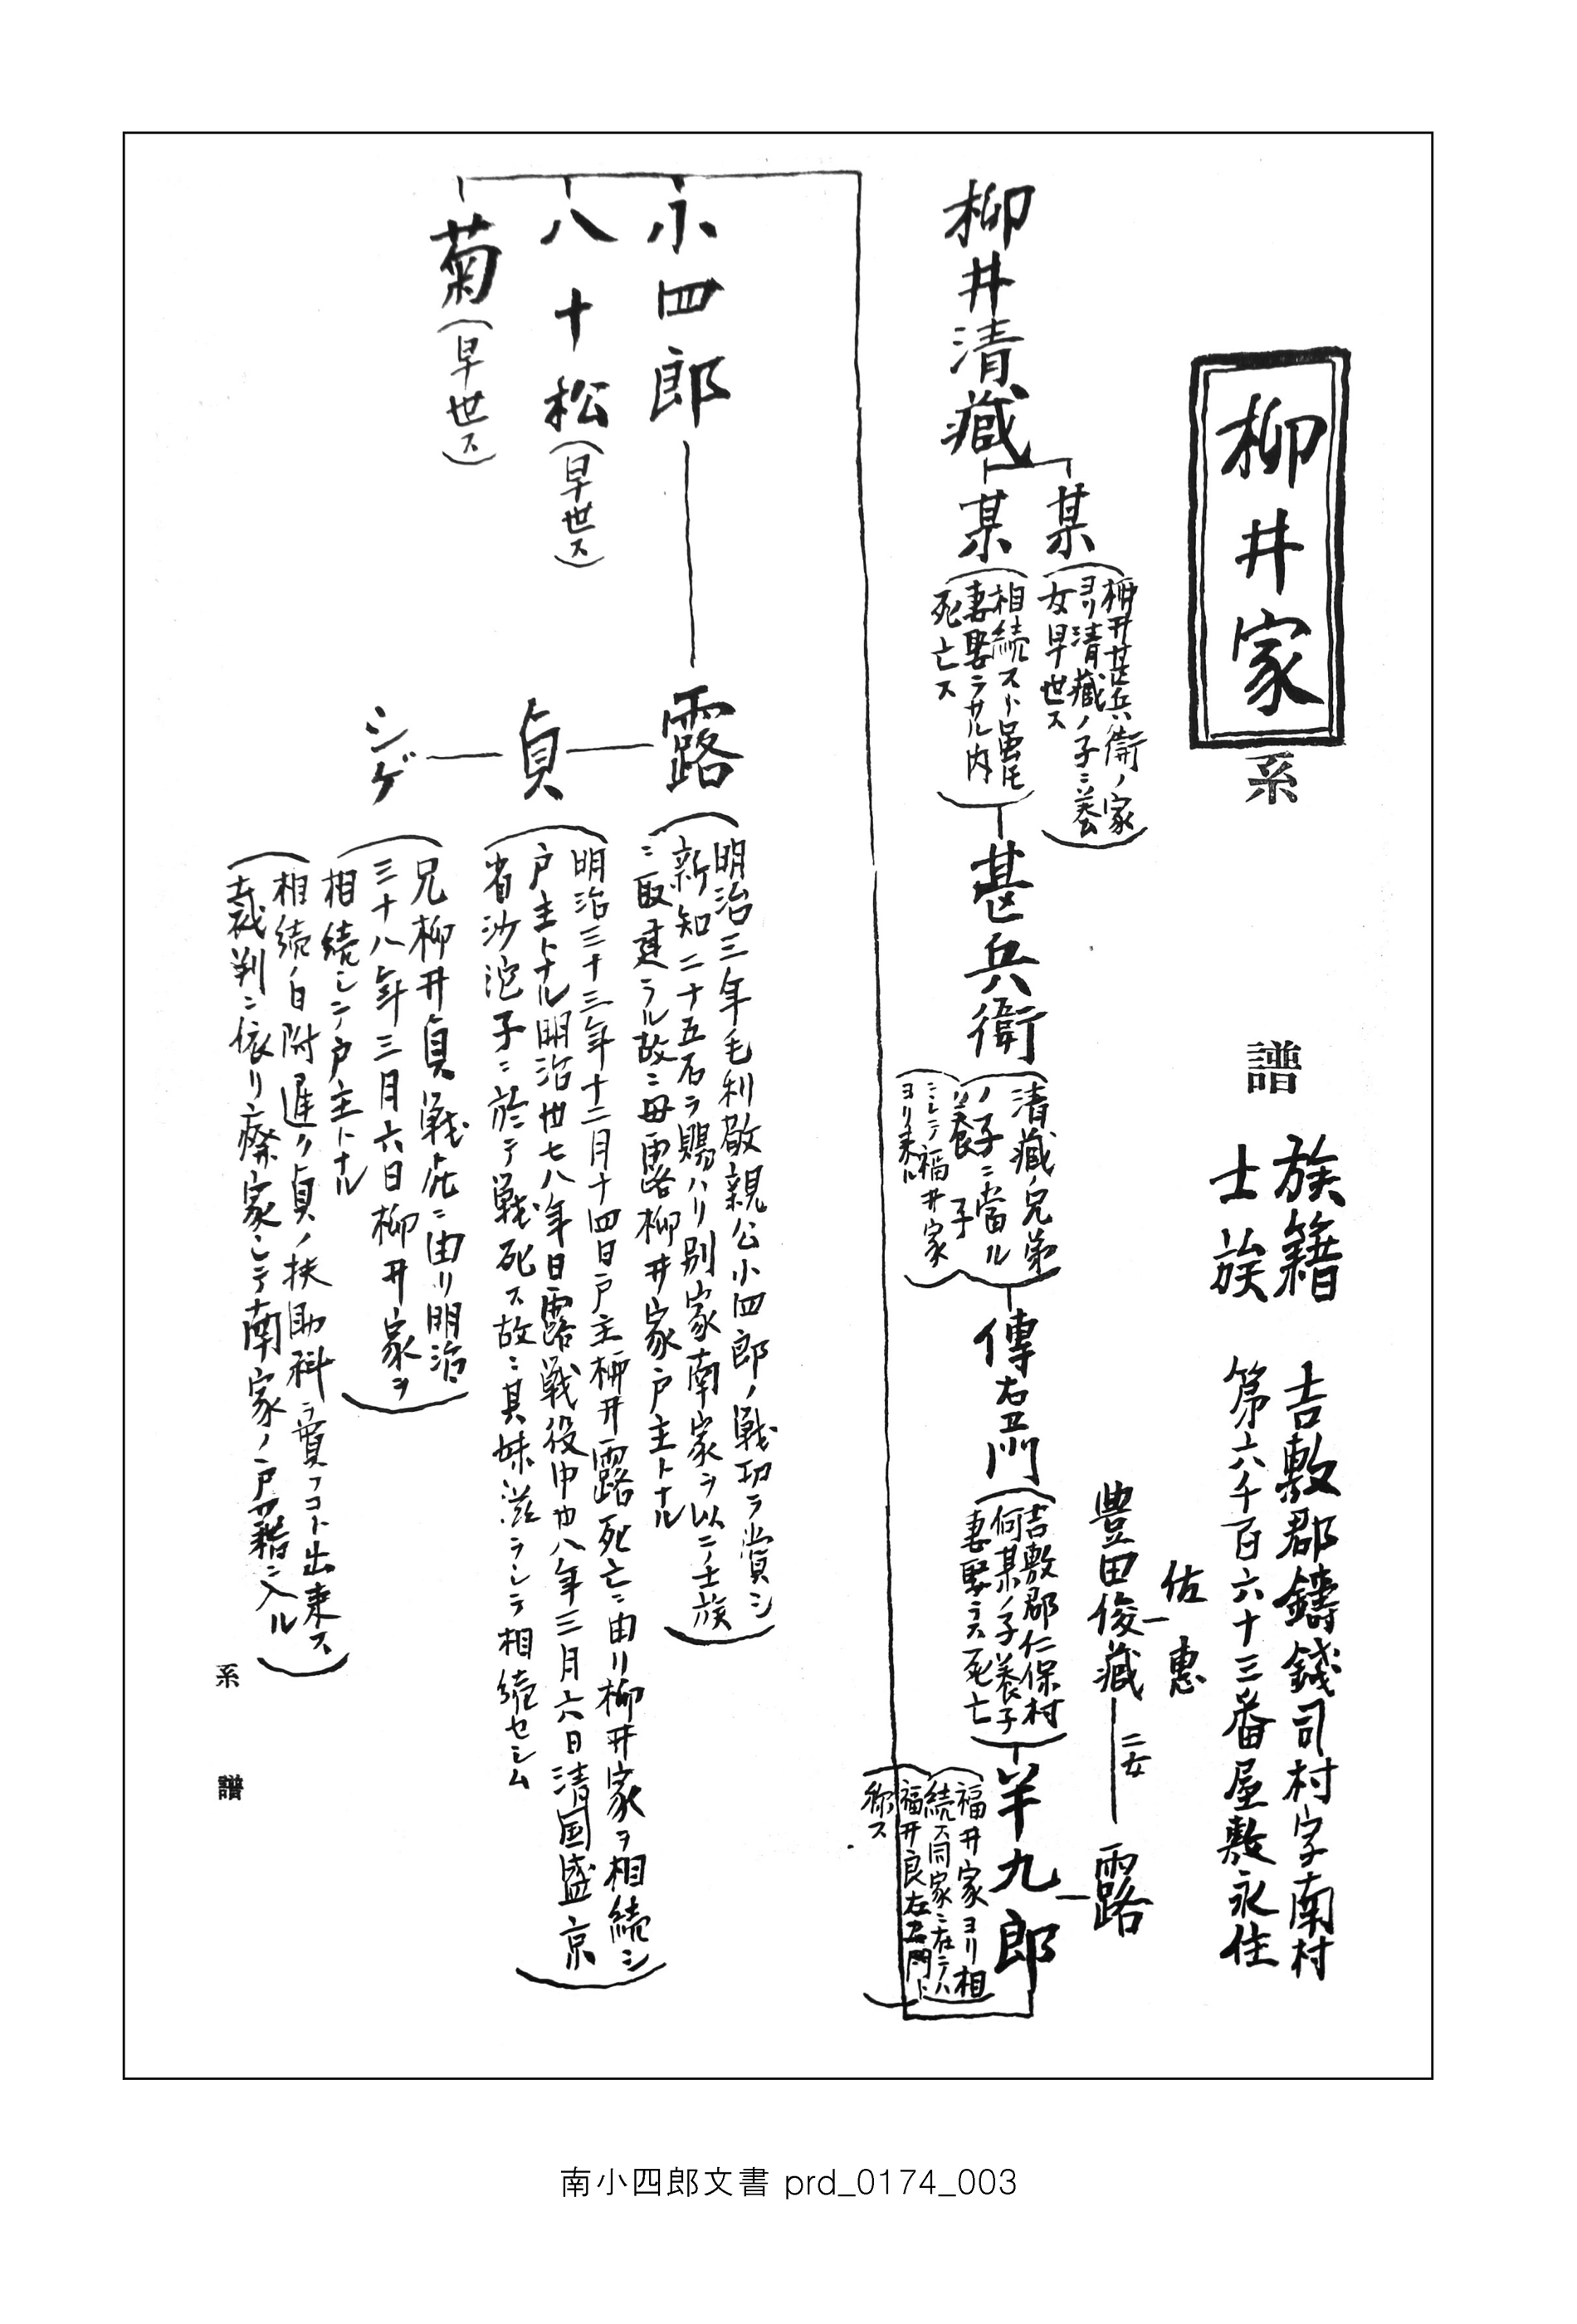 柳井家
系
譜
族籍
士族
吉敷郡鑄錢司村字南村
第六千百六十三番屋敷永住
佐
惠
豊田俊藏
二女
露
柳井清藏
某
(柳井甚兵衞ノ家
ヨリ清藏ノ子ニ養
女早世ス)
某
(相続スト雖モ
妻娶ラサル内
死亡ス)
甚兵衞
(清藏ノ兄弟
ノ子ニ當ル
養子
ニシテ福井家
ヨリ来ル)
傳右衛門
(吉敷郡仁保村
何某ノ子養子
妻娶ラス死亡)
半九郎
(福井家ヨリ相
続ス同家ニ在テハ
福井良左右門ト
称ス)
小四郎
八十松
(早世ス)
菊
(早世ス)
露
(明治三年毛利敬親公小四郎ノ戦功ヲ賞シ
新知二十五石ヲ賜ハリ別家南家ヲ以テ士族
ニ取建ラル故ニ毋露柳井家戸主トナル)
貞
(明治三十三年十二月十四日戸主柳井露死亡ニ由リ柳井家ヲ相続シ
戸主トナル明治卅七八年日露戦役中卅八年三月六日清国盛京
省沙沱子ニ於テ戦死ス故ニ其妹滋ヲシテ相続セシム)
シゲ
(兄柳井貞戦死ニ由リ明治
三十八年三月六日柳井家ヲ
相続シテ戸主トナル)
(相続ノ日附遅ク貞ノ扶助料ヲ貰フコト出来ス
裁判ニ依リ癈家シテ南家ノ戸籍ニ入ル)
系
譜
南小四郎文書 prd_0174_003